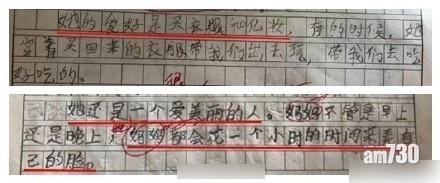 她的爱好是买衣服和化妆，有的时候，她
穿着买回来的衣服带我们出去玩，带我们去吃
好吃的。
她还是一个爱美丽的人。妈妈不管是早上
还是晚上，她都会花一个小时的时间来弄自
己的脸。
am730